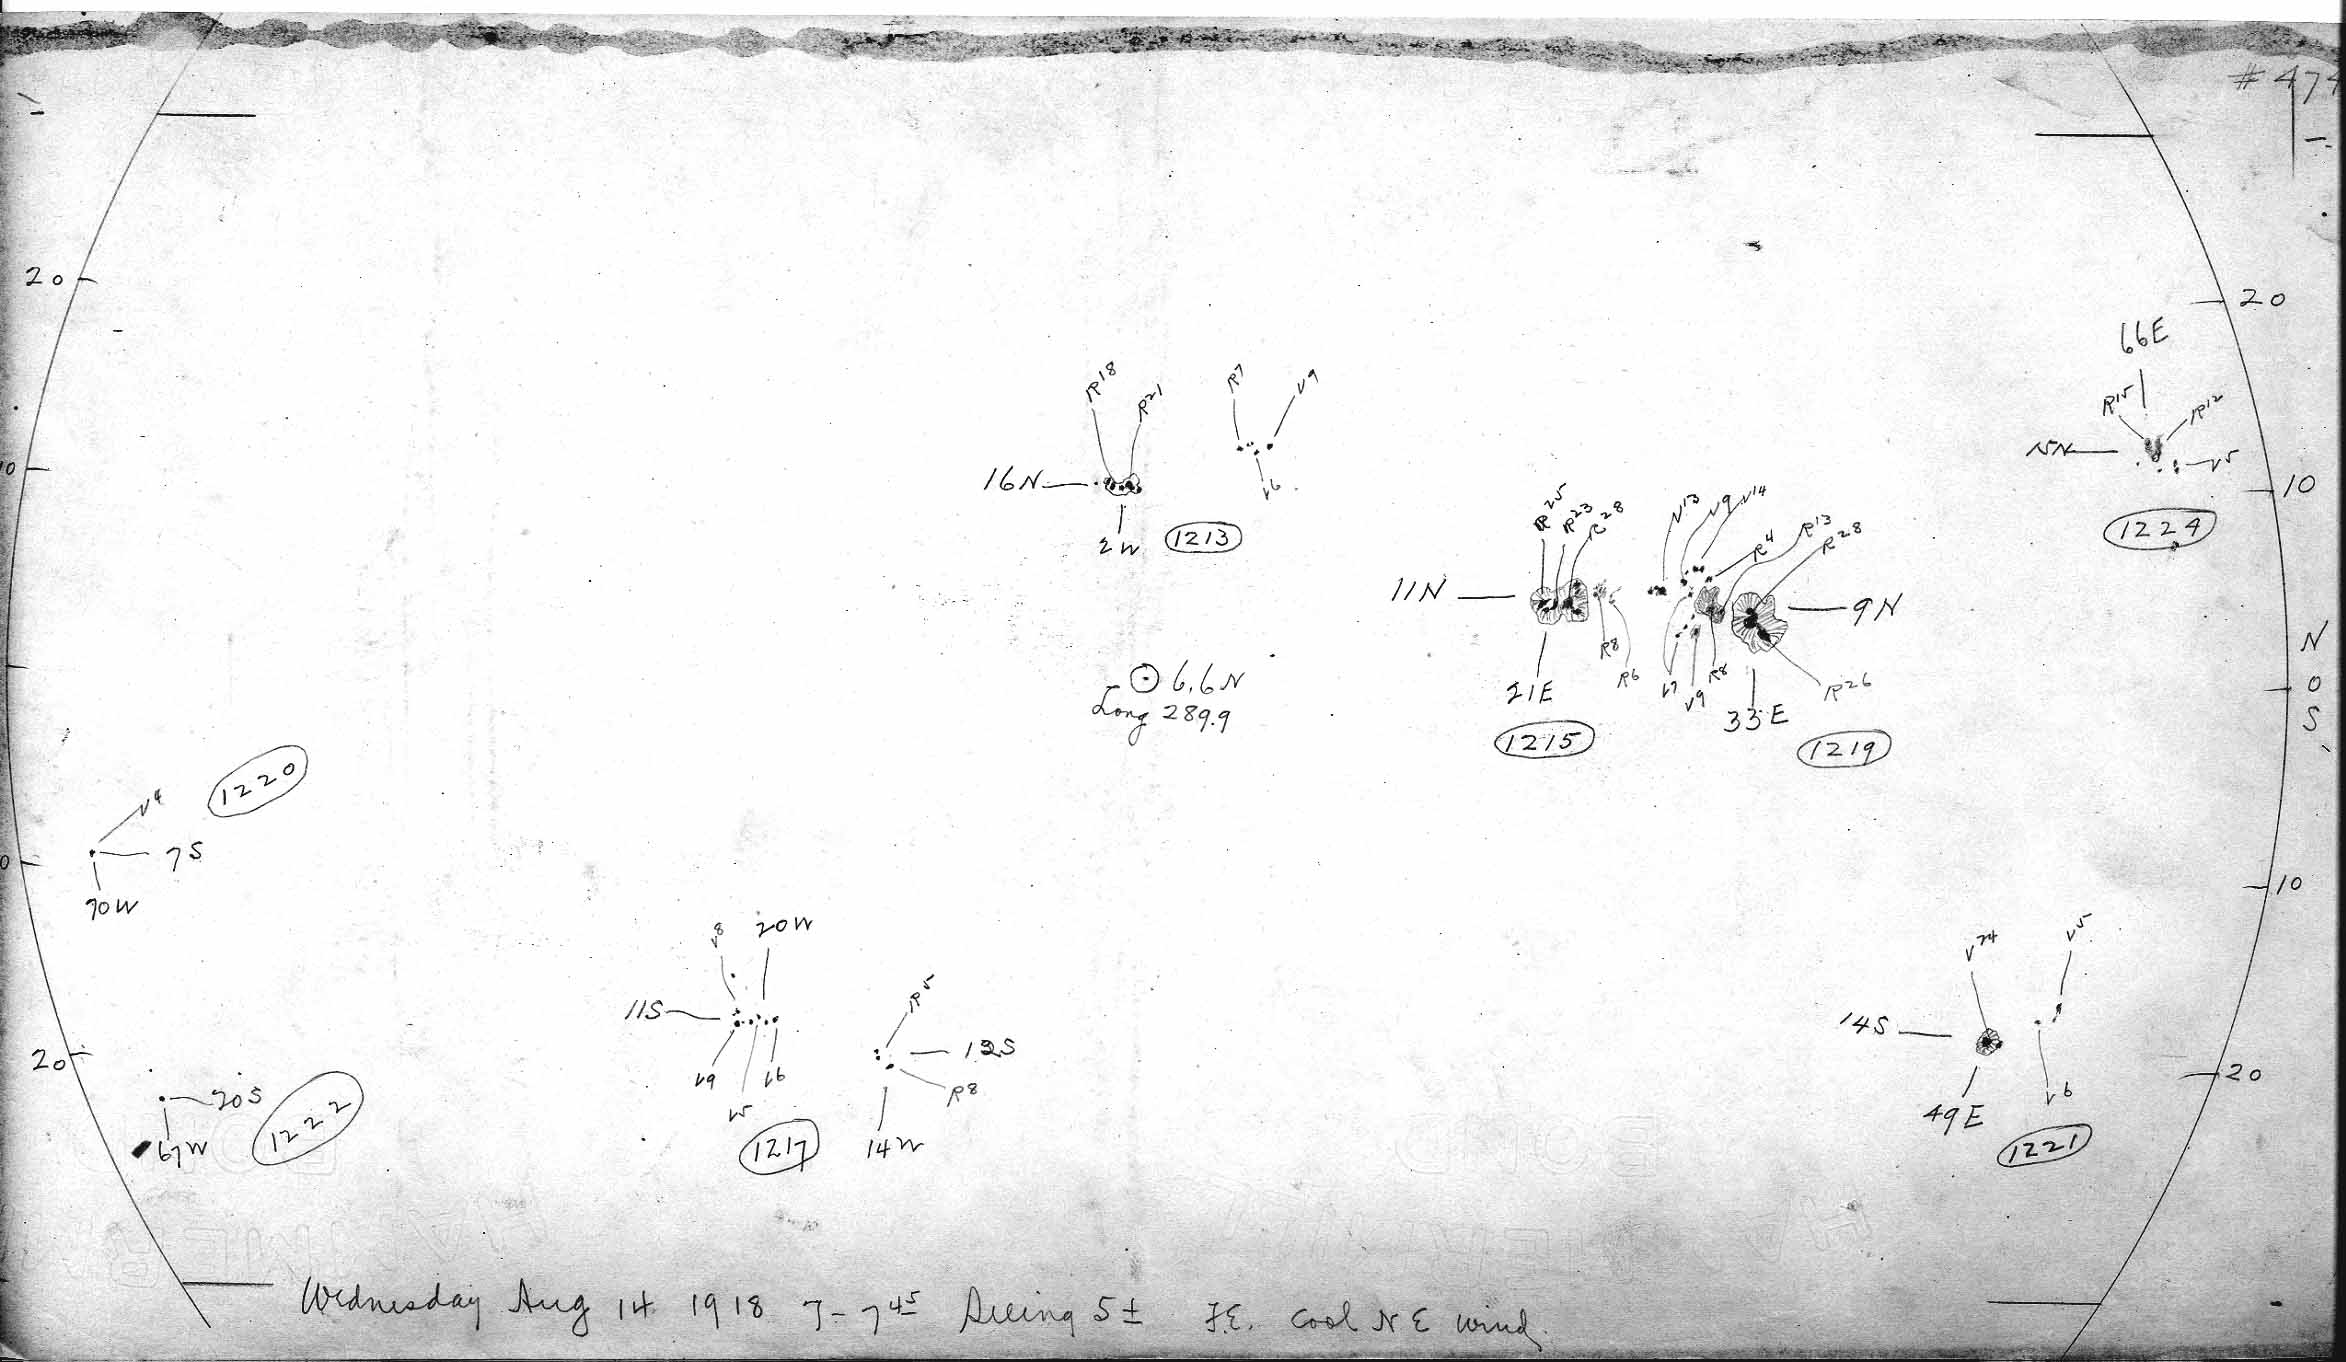 # 474
20
20
66E
R15
R12
15N
V5
10
10
1224
R18
R21
R7
V9
16N
V6
2W
1213
R25
R23
R28
V13
V9
V14
R4
R13
R28
11N
9N
R8
R6
V7
V9
R8
R26
21E
33E
1215
1219
N
0
S
6.6N
Long 289.9
1220
V4
7S
70W
0
10
V8
20W
11S
V9
V5
V6
1217
R5
13S
R8
14W
V24
V5
14S
49E
V6
1221
20
20
20S
67W
1222
Wednesday Aug 14 1918 7-7 45 Seeing 5± F.E. Cool N E wind.